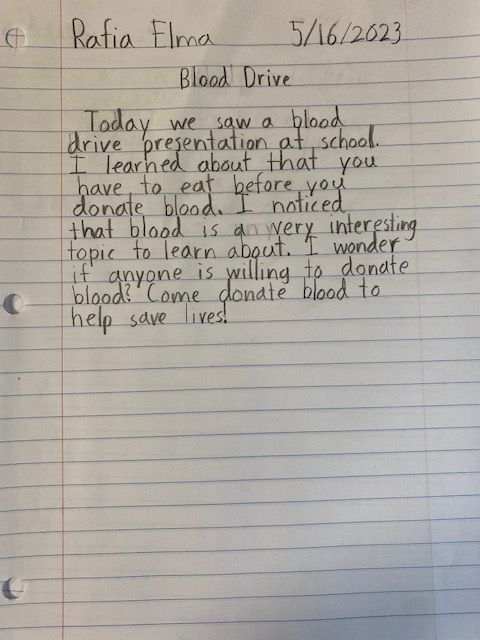 Rafia Elma 5/16/2023
Blood Drive
Today we saw a blood
drive presentation at school.
I learned about that you
have to eat before you
donate blood. I noticed
that blood is a very interesting
topic to learn about. I wonder
if anyone is willing to donate
blood? Come donate blood to
help save lives!